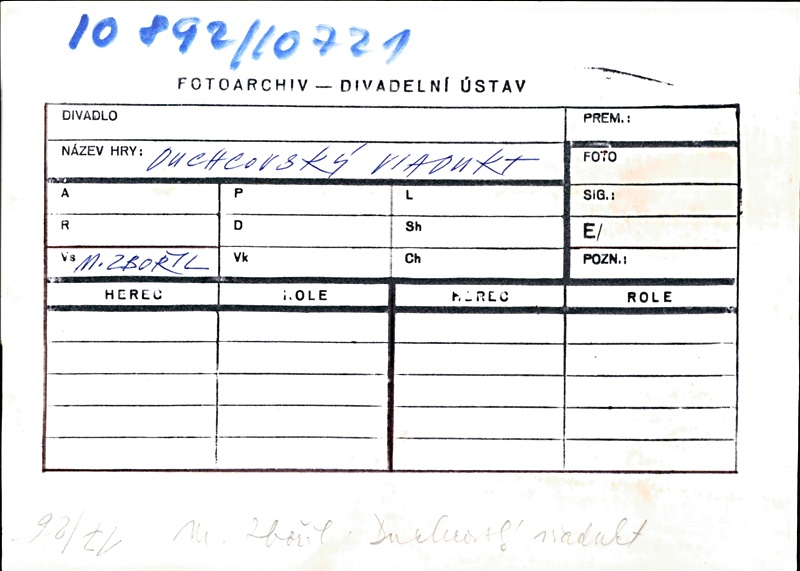 10 892/10721
FOTOARCHIV — DIVADELNÍ ÚSTAV
DIVADLO PREM.:
NÁZEV HRY: DUCHCOVSKÝ VIADUKT FOTO
A P L SIG.:
R D Sh E/
Vs M. ZBOŘIL Vk Ch POZN.:
HEREC ROLE HEREC ROLE
M. Zbořil: Duchcovský viadukt